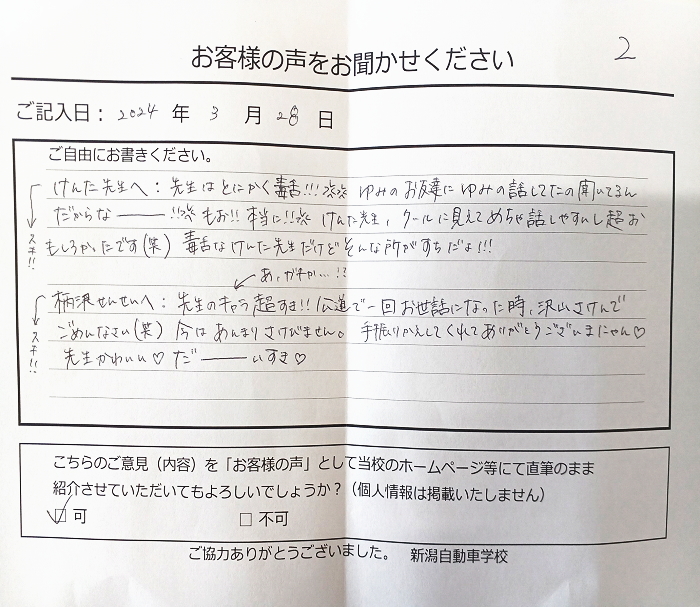 2
お客様の声をお聞かせください
ご記入日: 2024 年 3 月 28 日
ご自由にお書きください。
けんた先生へ:先生はとにかく毒舌!!! ゆみのお友達にゆみの話してたの聞いてるん
だからな――!! もお!!本当に!! けんた先生,クールに見えてめちゃ話しやすいし超お
もしろかったです(笑) 毒舌なけんた先生だけどそんな所がすちだよ!!!
スキ!!
あ,がわが…!?
柄澤せんせいへ:先生のキャラ超すき!!公道で一回お世話になった時,沢山さけんで
ごめんなさい(笑) 今はあんまりさけびません。 手振りかえしてくれてありがとうございまにゃん♡
先生かわいい♡ だ――いすき♡
スキ!!
こちらのご意見(内容)を「お客様の声」として当校のホームページ等にて直筆のまま
紹介させていただいてもよろしいでしょうか?(個人情報は掲載いたしません)
☑ 可 □ 不可
ご協力ありがとうございました。 新潟自動車学校